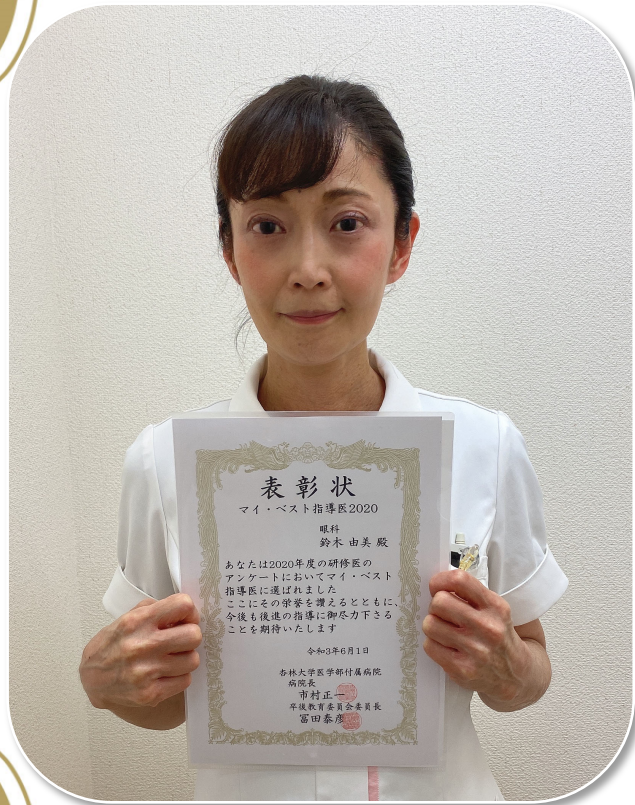 表彰状
マイ・ベスト指導医2020
眼科
鈴木 由美 殿
あなたは2020年度の研修医の
アンケートにおいてマイ・ベスト
指導医に選ばれました
ここにその栄誉を讃えるとともに、
今後も後進の指導に御尽力下さる
ことを期待いたします
令和3年6月1日
杏林大学医学部付属病院
病院長
市村正一
卒後教育委員会委員長
冨田泰彦